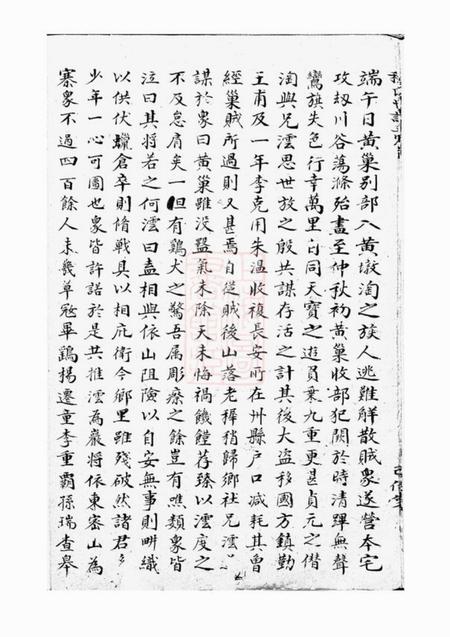 端午日黄巢别部入黄墩淘之族人逃難解散賊衆遂營夲宅
攻刼川谷蕩滌殆盡至仲秋初黄巢收部犯闕於時清蹕無聲
鸞旗失色行幸萬里百同天寳之遊員乗九重更甚貞元之僣
淘與兄澐思世放之殷共謀存活之計其後大盗移國方鎮勤
王甫及一年李克用朱温收復長安所在州縣户口减耗其曽
經巢賊所過則又甚焉自從賊後山落老穉稍歸鄉社兄澐
謀於衆曰黄巢雖没㓙氣未除天未悔禍饑饉荐臻以澐度之
不及息肩矣一但有鷄犬之驚吾属彫瘵之餘豈有噍類衆皆
泣曰其將若之何澐曰盍相與依山阻險以自安無事則畊織
以供伏蠟倉卒則脩戰具以相庇衛今鄉里雖殘破然諸君
少年一心可圖也衆皆許諾於是共推澐為巖將依東密山為
寨衆不過四百餘人未幾单冠畢鷂揚遷童李重覇孫瑞查皋